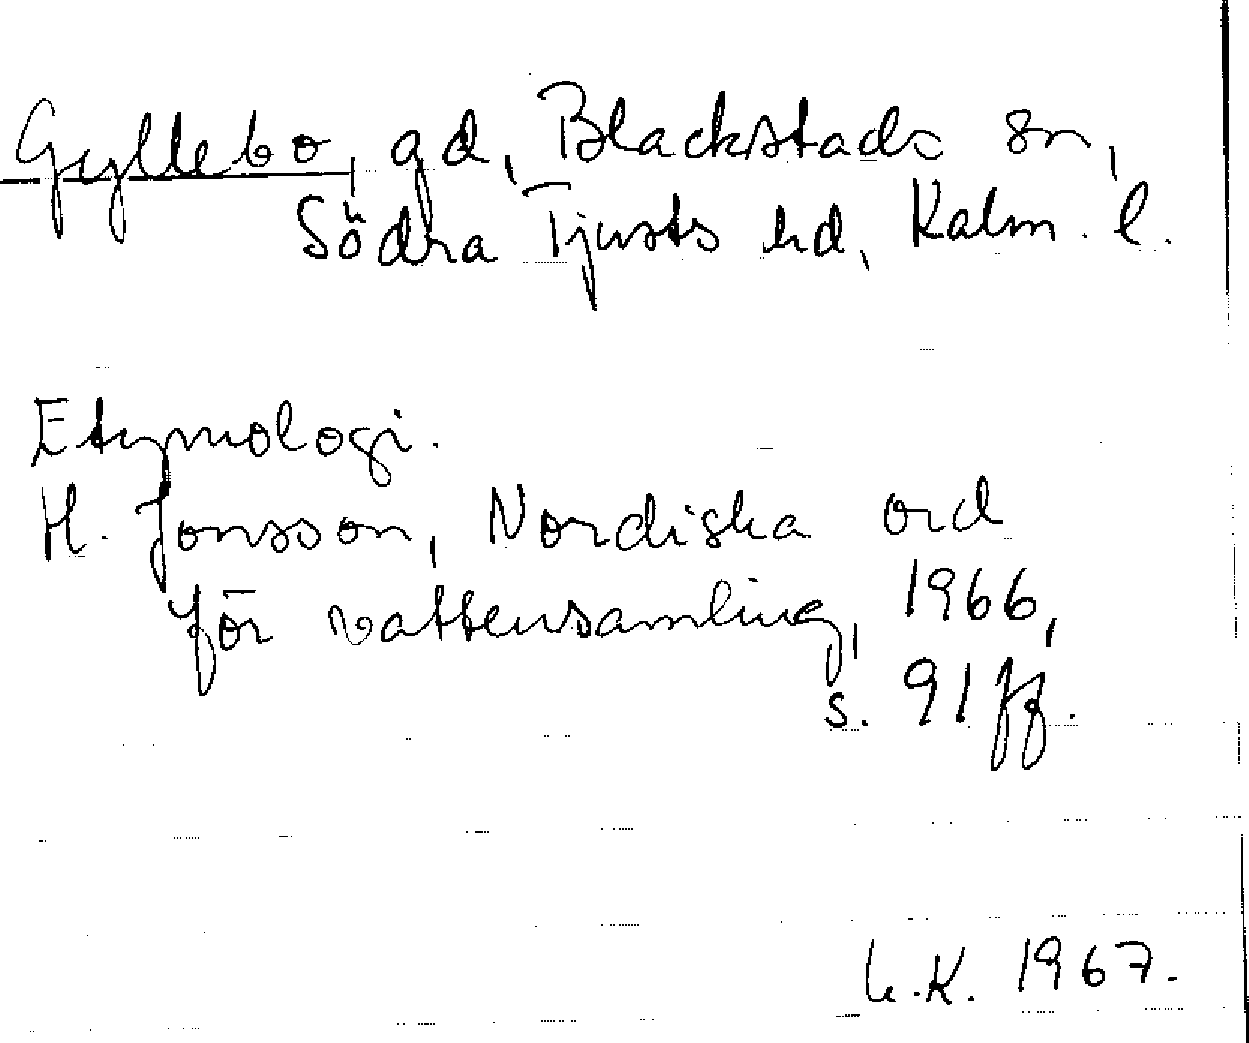 Gyllebo, gd, Blackstads sn,
Södra Tjusts hd, Kalm. l.
Etymologi.
H. Jonsson, Nordiska ord
för vattensamling, 1966,
s. 91 ff.
L.K. 1967.